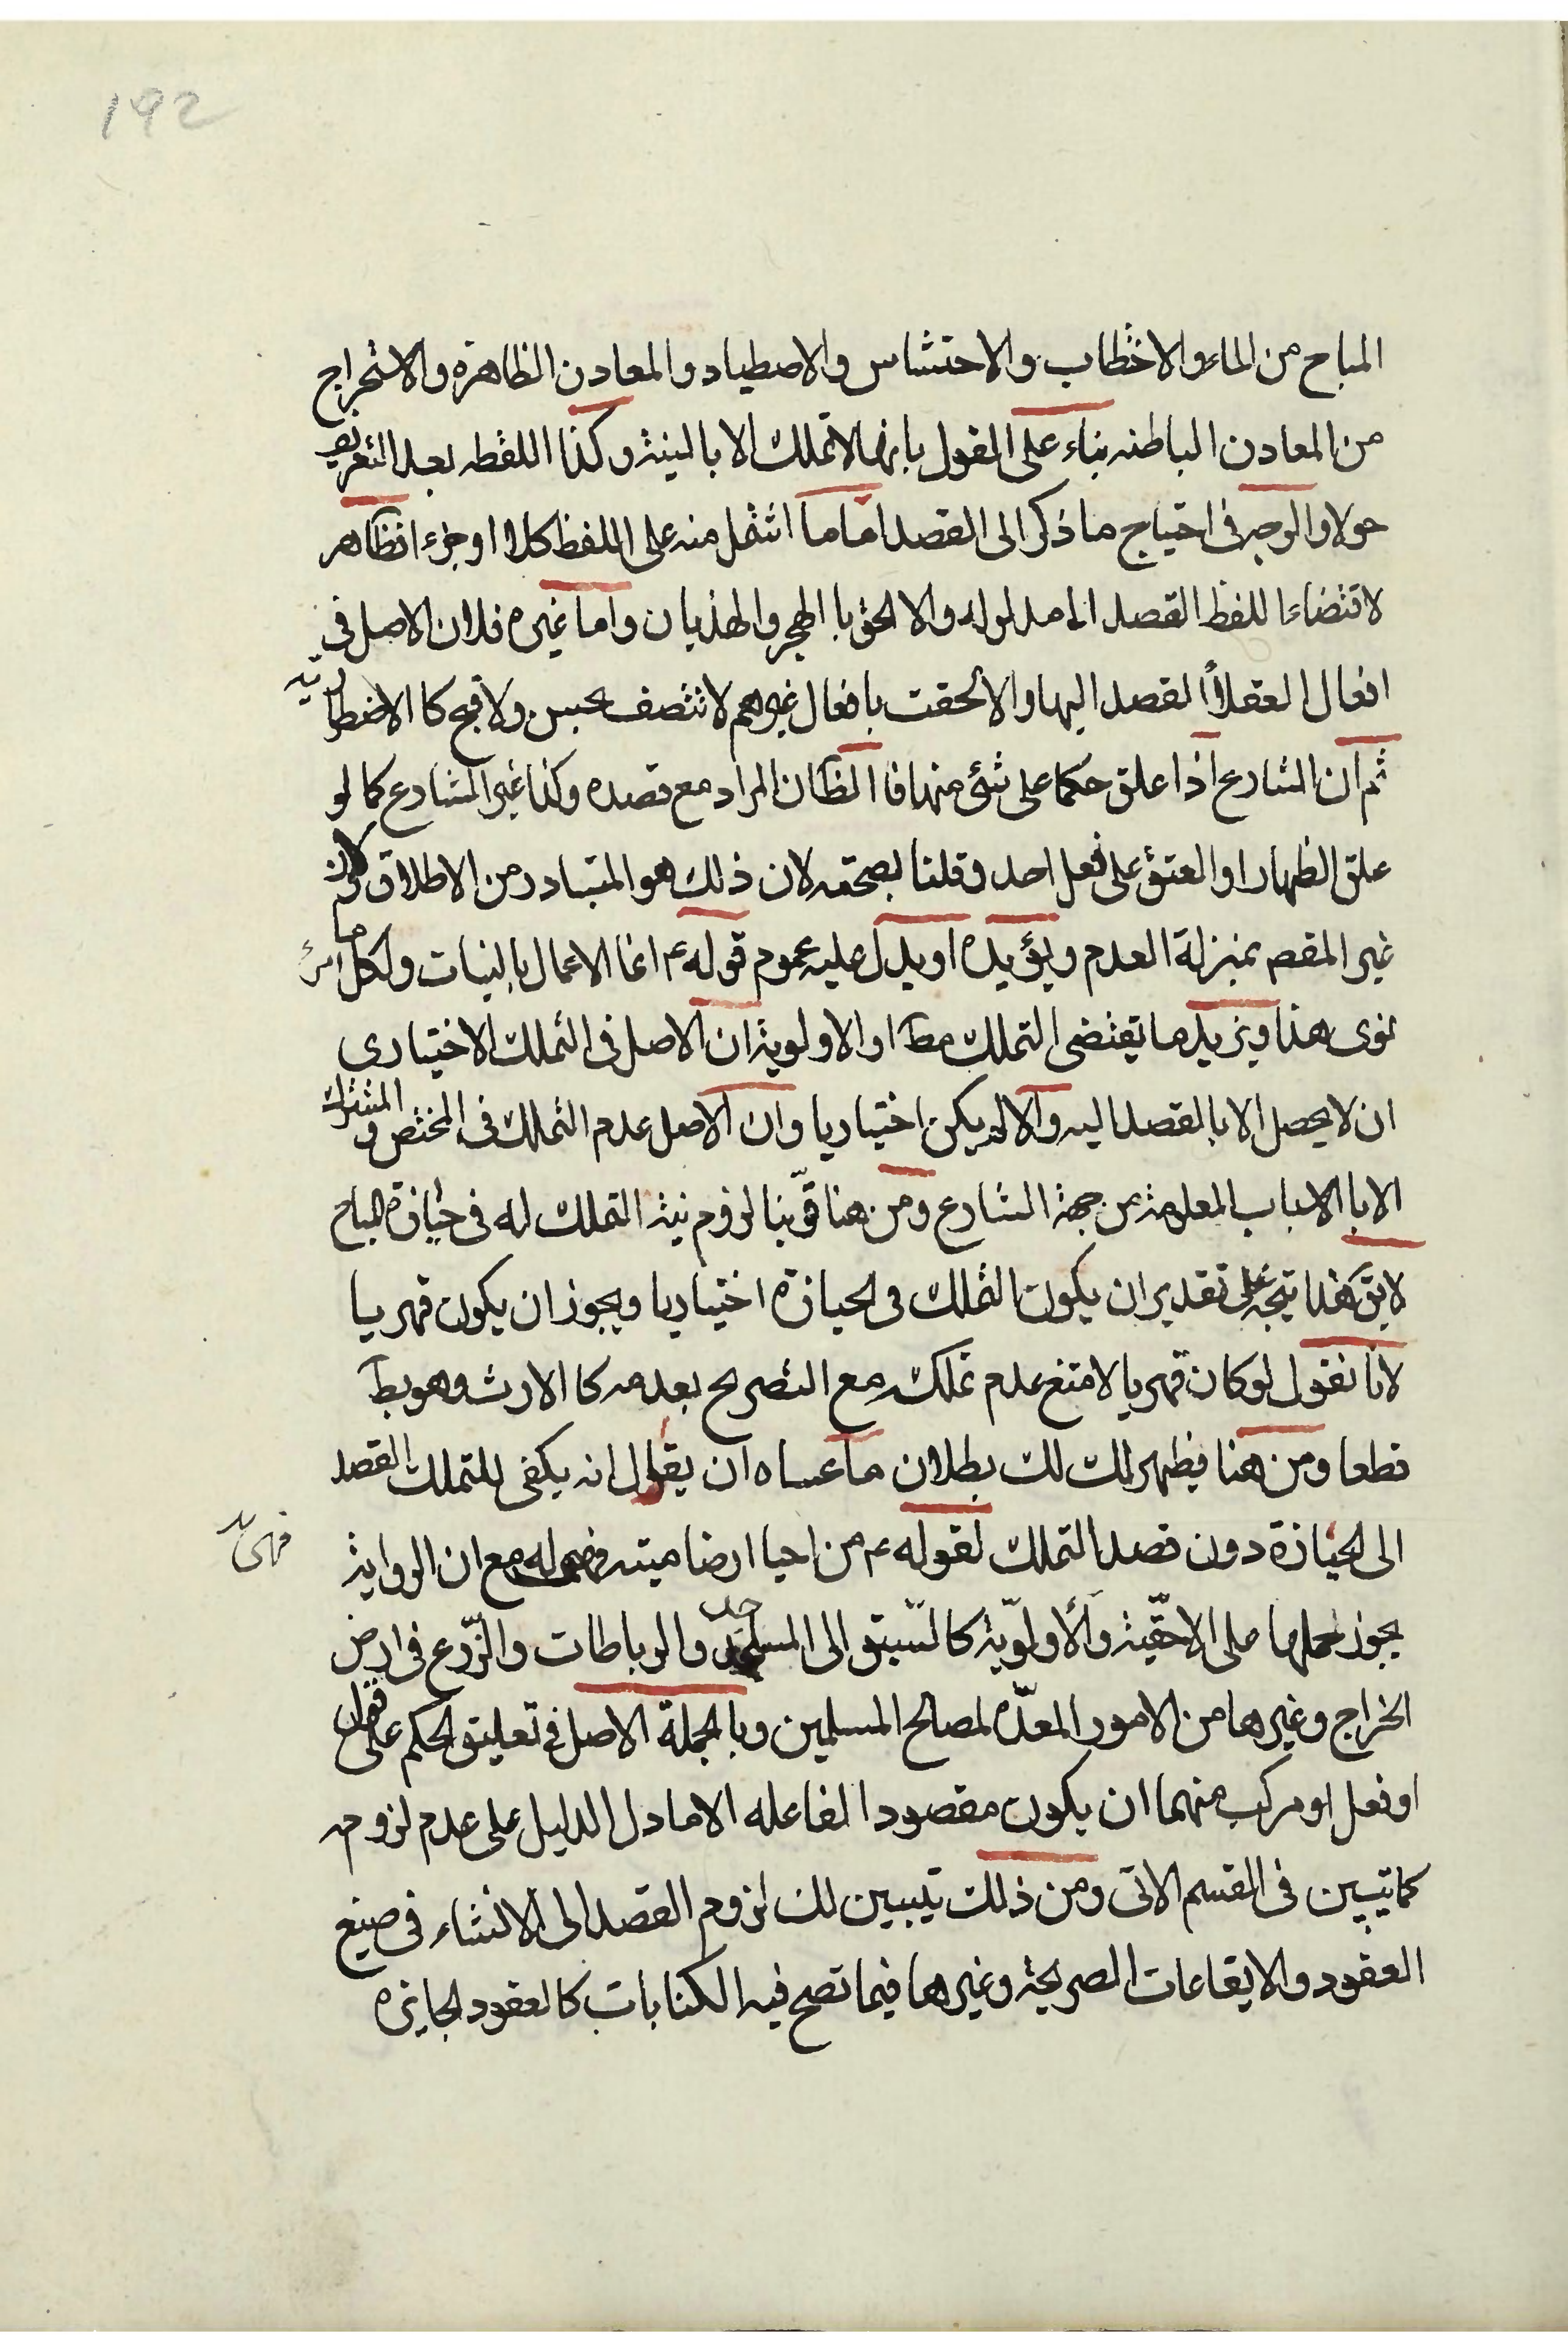 192
المباح من الماء والاحتطاب والاحتشاش والاصطياد والمعادن الظاهرة والاستخراج
من المعادن الباطنه بناء على القول بانها لا تملك الا بالنية وكذا اللقطه بعد التعريف
حولا والوجه فى احتياج ما ذكر الى القصد اما ما اشتمل منه على اللفظ كلا او جزء افظاهر
لاقتضاء اللفظ القصد الى مدلوله والا لحق با الهجر والهذيان واما غيره فلان الاصل فى
افعال العقلاء القصد اليها والا لحقت بافعال غيرهم لا تتصف بحسن ولا قبح كا الاضطرارية
ثم ان الشارع اذا علق حكما على شئ منها فا الظ ان المراد مع قصده وكذا غير الشارع كما لو
علق الظهار او العتق على فعل احد وقلنا بصحته لان ذلك هو المتبادر من الاطلاق ولان
غير المقصم بمنزلة العدم ويؤيده او يدل عليه عموم قوله ع انما الاعمال بالنيات ولكل امرئ ما
نوى هذا ويزيد ما يقتضى التملك مط او الاولوية ان الاصل فى التملك الاختيارى
ان لا يحصل الا با القصد اليه والا لم يكن اختياريا وان الاصل عدم التملك فى المختص و المشترك
الا با الاسباب المعلومة من جهة الشارع ومن هنا قوّينا لزوم نية التملك له فى حيازة المباح
لا يق هذا يتجه على تقدير ان يكون التملك فى الحيازة اختياريا ويجوز ان يكون قهريا
لانا نقول لو كان قهريا لامتنع عدم تملكه مع التصريح بعدمه كا الارث وهو بط
قطعا ومن هنا فيظهر لك لك بطلان ما عساه ان يقال انه يكفى للتملك القصد
الى الحيازة دون قصد التملك لقوله ع من احيا ارضا ميتة فهى له مع ان الرواية
فهى
يجوز حملها على الاحقّية والأولوّية كالسّبق الى المسجد والرباطات والزّرع فى ارض
الخراج وغيرها من الامور المعدّه لمصالح المسلمين وبا الجملة الاصل فى تعليق الحكم على قول
او فعل او مركب منهما ان يكون مقصودا لفاعله الا ما دل الدليل على عدم لزومه
كما يتبين فى القسم الاتى ومن ذلك يتبيين لك لزوم القصد الى الانشاء فى صيغ
العقود والايقاعات الصريحة وغيرها فيما تصح فيه الكنايات كالعقود الجايزه